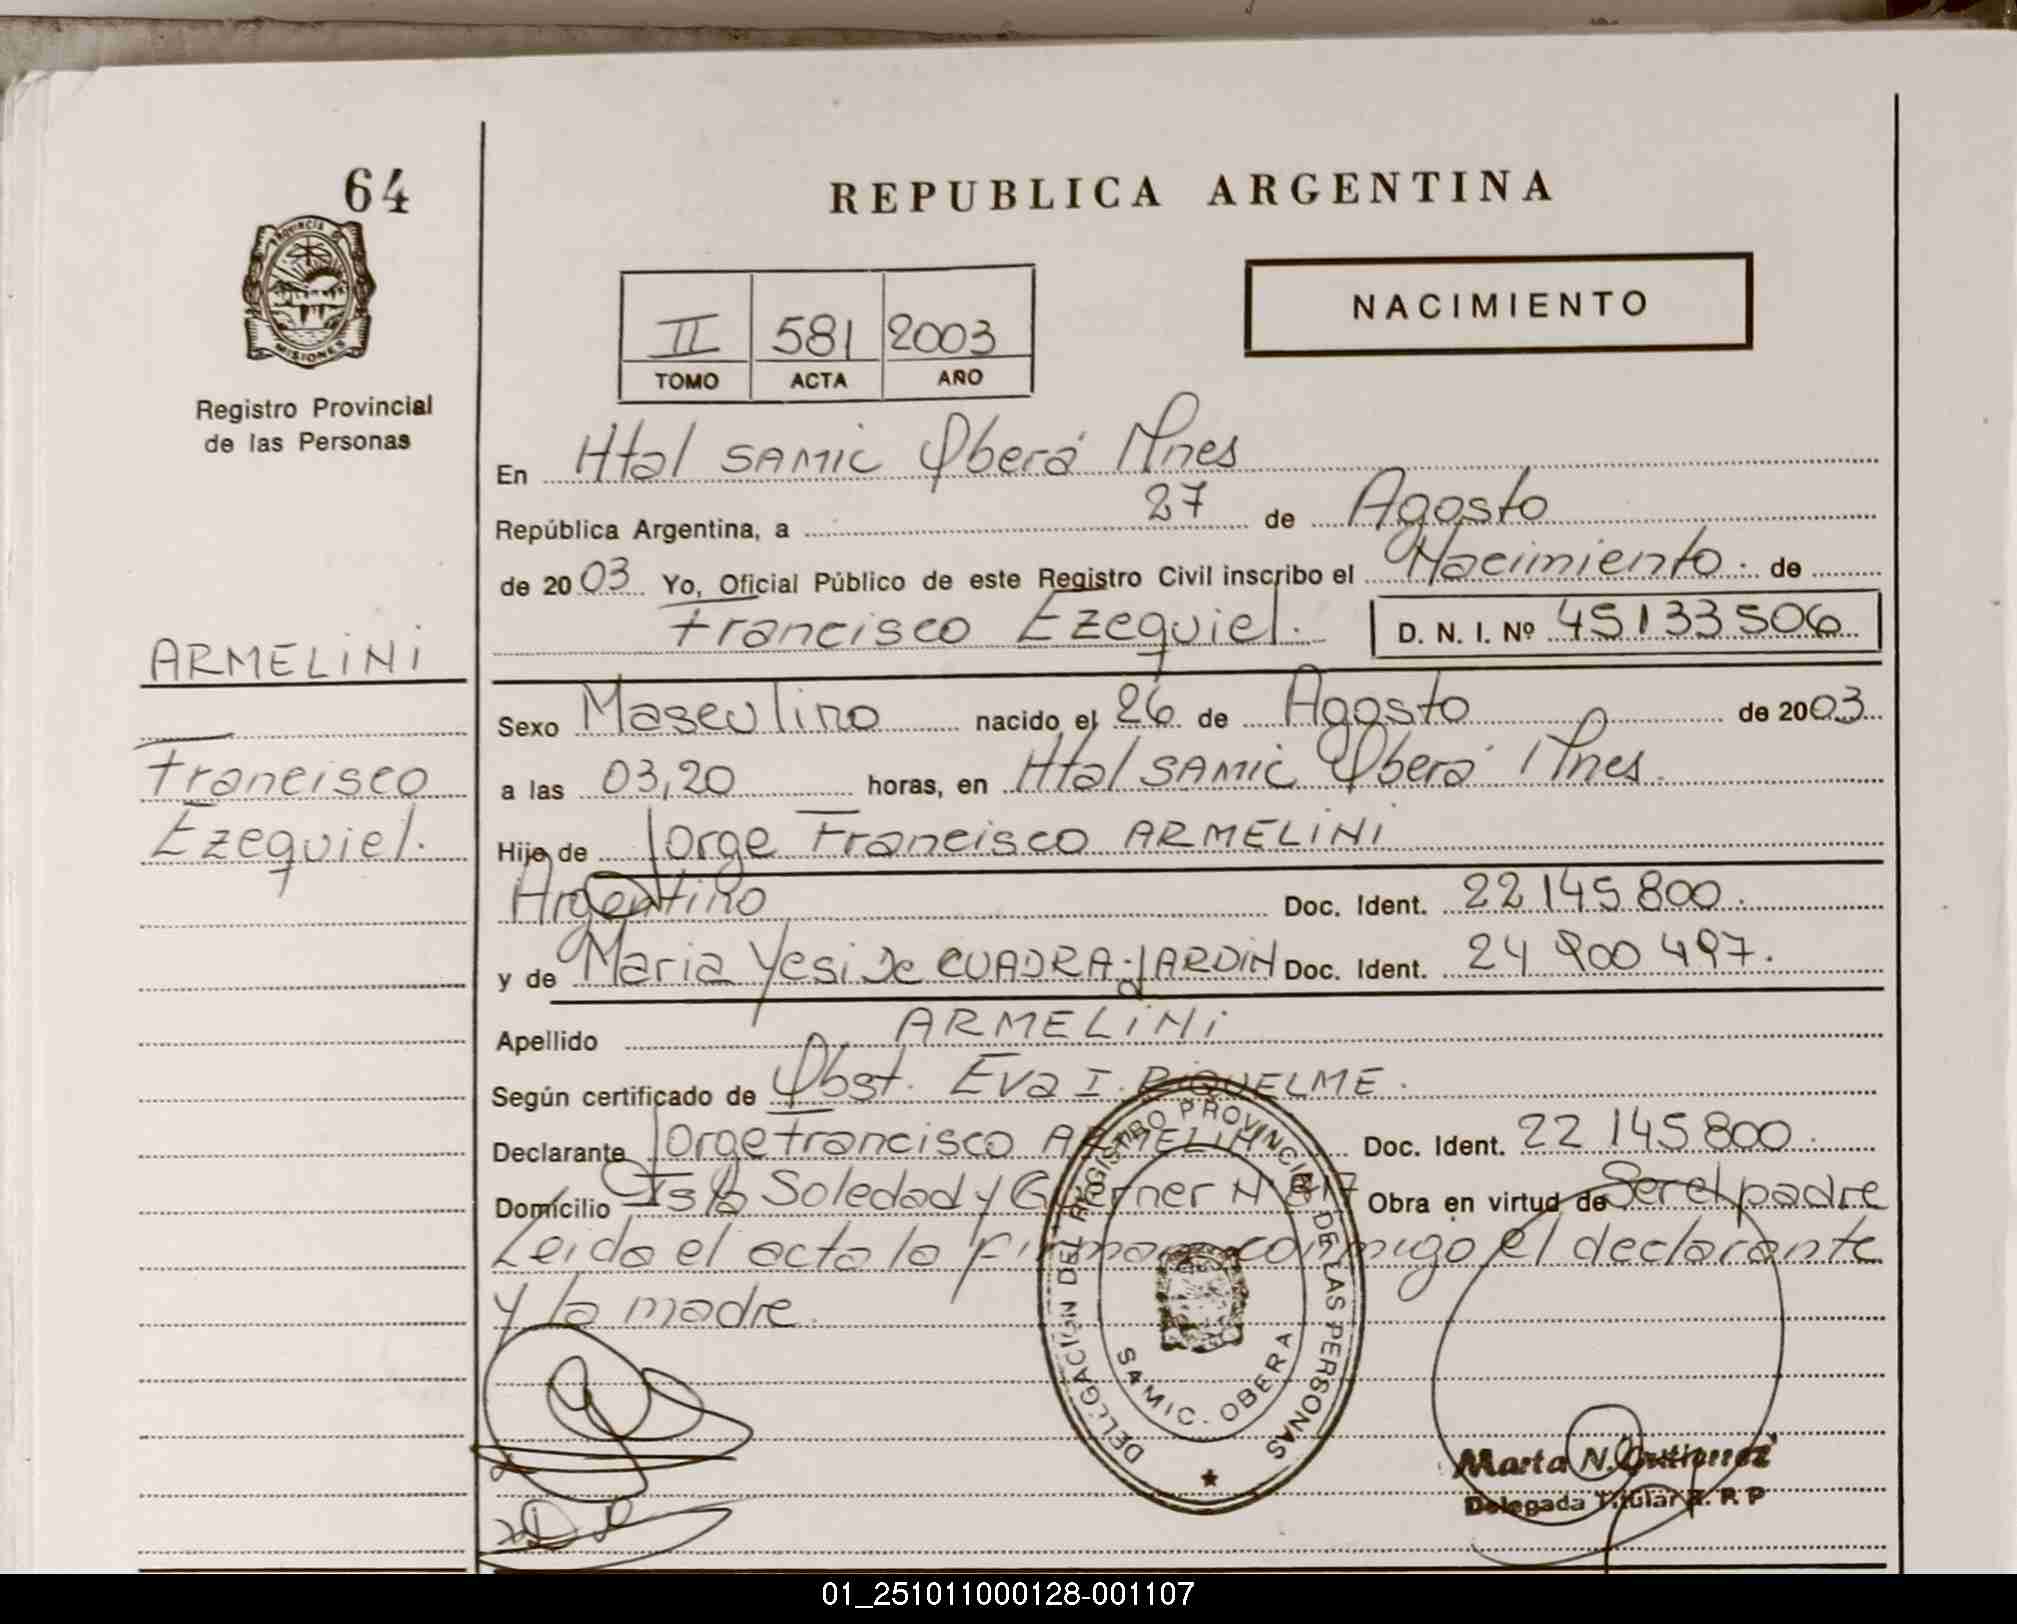 64
PROVINCIA DE
MISIONES
Registro Provincial
de las Personas
REPUBLICA ARGENTINA
NACIMIENTO
II 581 2003
TOMO ACTA AÑO
En Htal SAMIC Oberá Mnes
República Argentina, a 27 de Agosto
de 2003 Yo, Oficial Público de este Registro Civil inscribo el Nacimiento. de
Francisco Ezequiel. D. N. I. Nº 45133506
ARMELINI
Francisco
Ezequiel.
Sexo Masculino nacido el 26 de Agosto de 2003
a las 03,20 horas, en Htal SAMIC Oberá Mnes.
Hijo de Jorge Francisco ARMELINI
Argentino Doc. Ident. 22145800.
y de Maria Yesi De CUADRA JARDIN Doc. Ident. 24900497.
Apellido ARMELINI
Según certificado de Obst. Eva I. RIQUELME.
Declarante Jorge Francisco ARMELINI Doc. Ident. 22145800.
Domicilio Isla Soledad y Nº 817 Obra en virtud de Ser el padre
Leida el acta la firman conmigo el declarante
y la madre.
DELEGACIÓN DEL REGISTRO PROVINCIAL DE LAS PERSONAS
SAMIC. OBERA
Marta N. Gutierrez
Delegada Titular R. P. P
01_251011000128-001107